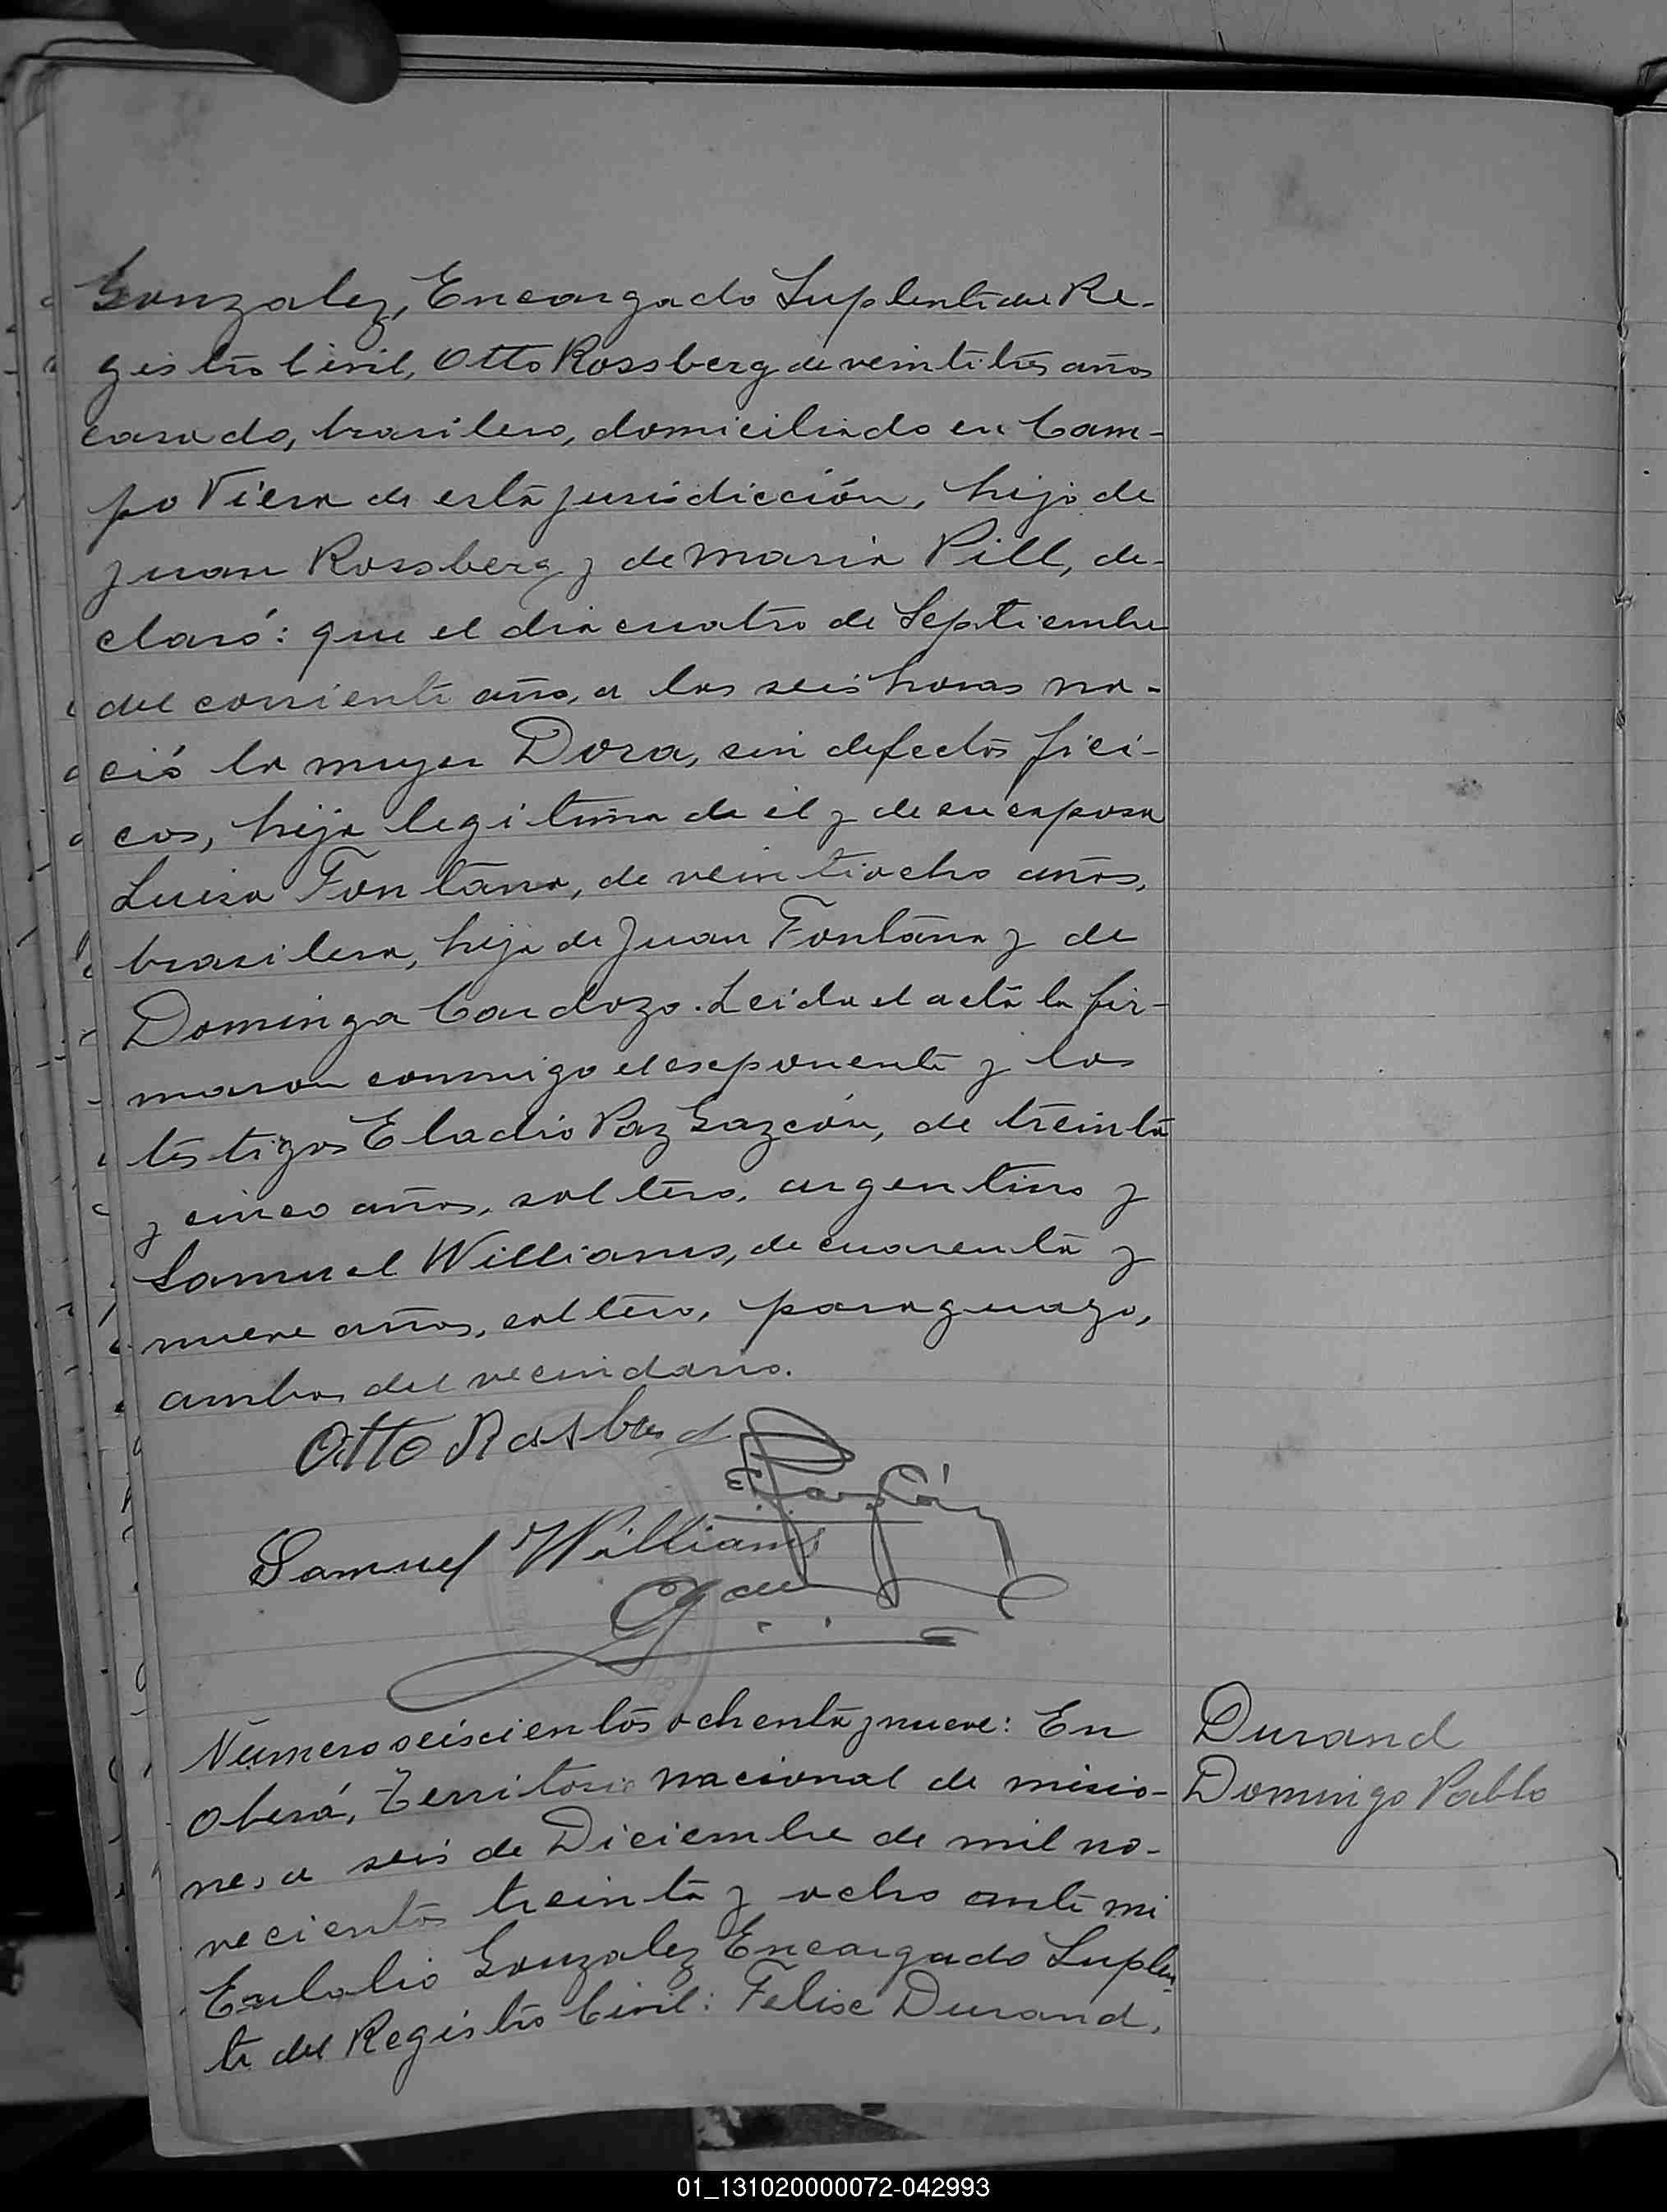 Gonzalez, Encargado Suplente del Re-
gistro Civil, Otto Rossberg de veintitres años
casado, brasilero, domiciliado en Cam-
po Viera de esta jurisdicción, hijo de
Juan Rossberg y de Maria Pill, de-
claró: que el dia cuatro de Septiembre
del corriente año, a las seis horas na-
ció la mujer Dora, sin defectos fici-
cos, hija legitima de él y de su esposa
Luisa Fontana, de veintiocho años,
brasilera, hija de Juan Fontana y de
Dominga Cardozo. Leida el acta la fir-
maron conmigo el esponente y los
testigos Eladio Paz Gazcón, de treinta
y cinco años, soltero, argentino y
Samuel Williams, de cuarenta y
nueve años, soltero, paraguayo,
ambos del vecindario.
Otto
Samuel Williams
Número seiscientos ochenta y nueve: En
Oberá, Territorio nacional de misio-
nes, a seis de Diciembre de mil no-
vecientos treinta y ocho ante mi
Eulalio Gonzalez Encargado Suplen-
te del Registro Civil: Felise Durand,
Durand
Domingo Pablo
01_131020000072-042993